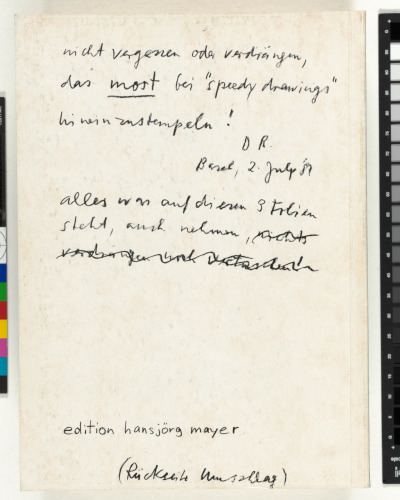 nicht vergessen oder verdrängen,
das most bei "speedy drawings"
hineinzustempeln!
D R.
Basel, 2. July '89
alles was auf diesen 3 Folien
steht, auch nehmen, nichts
verdrängen
edition hansjörg mayer
(Rückseite Umschlag)